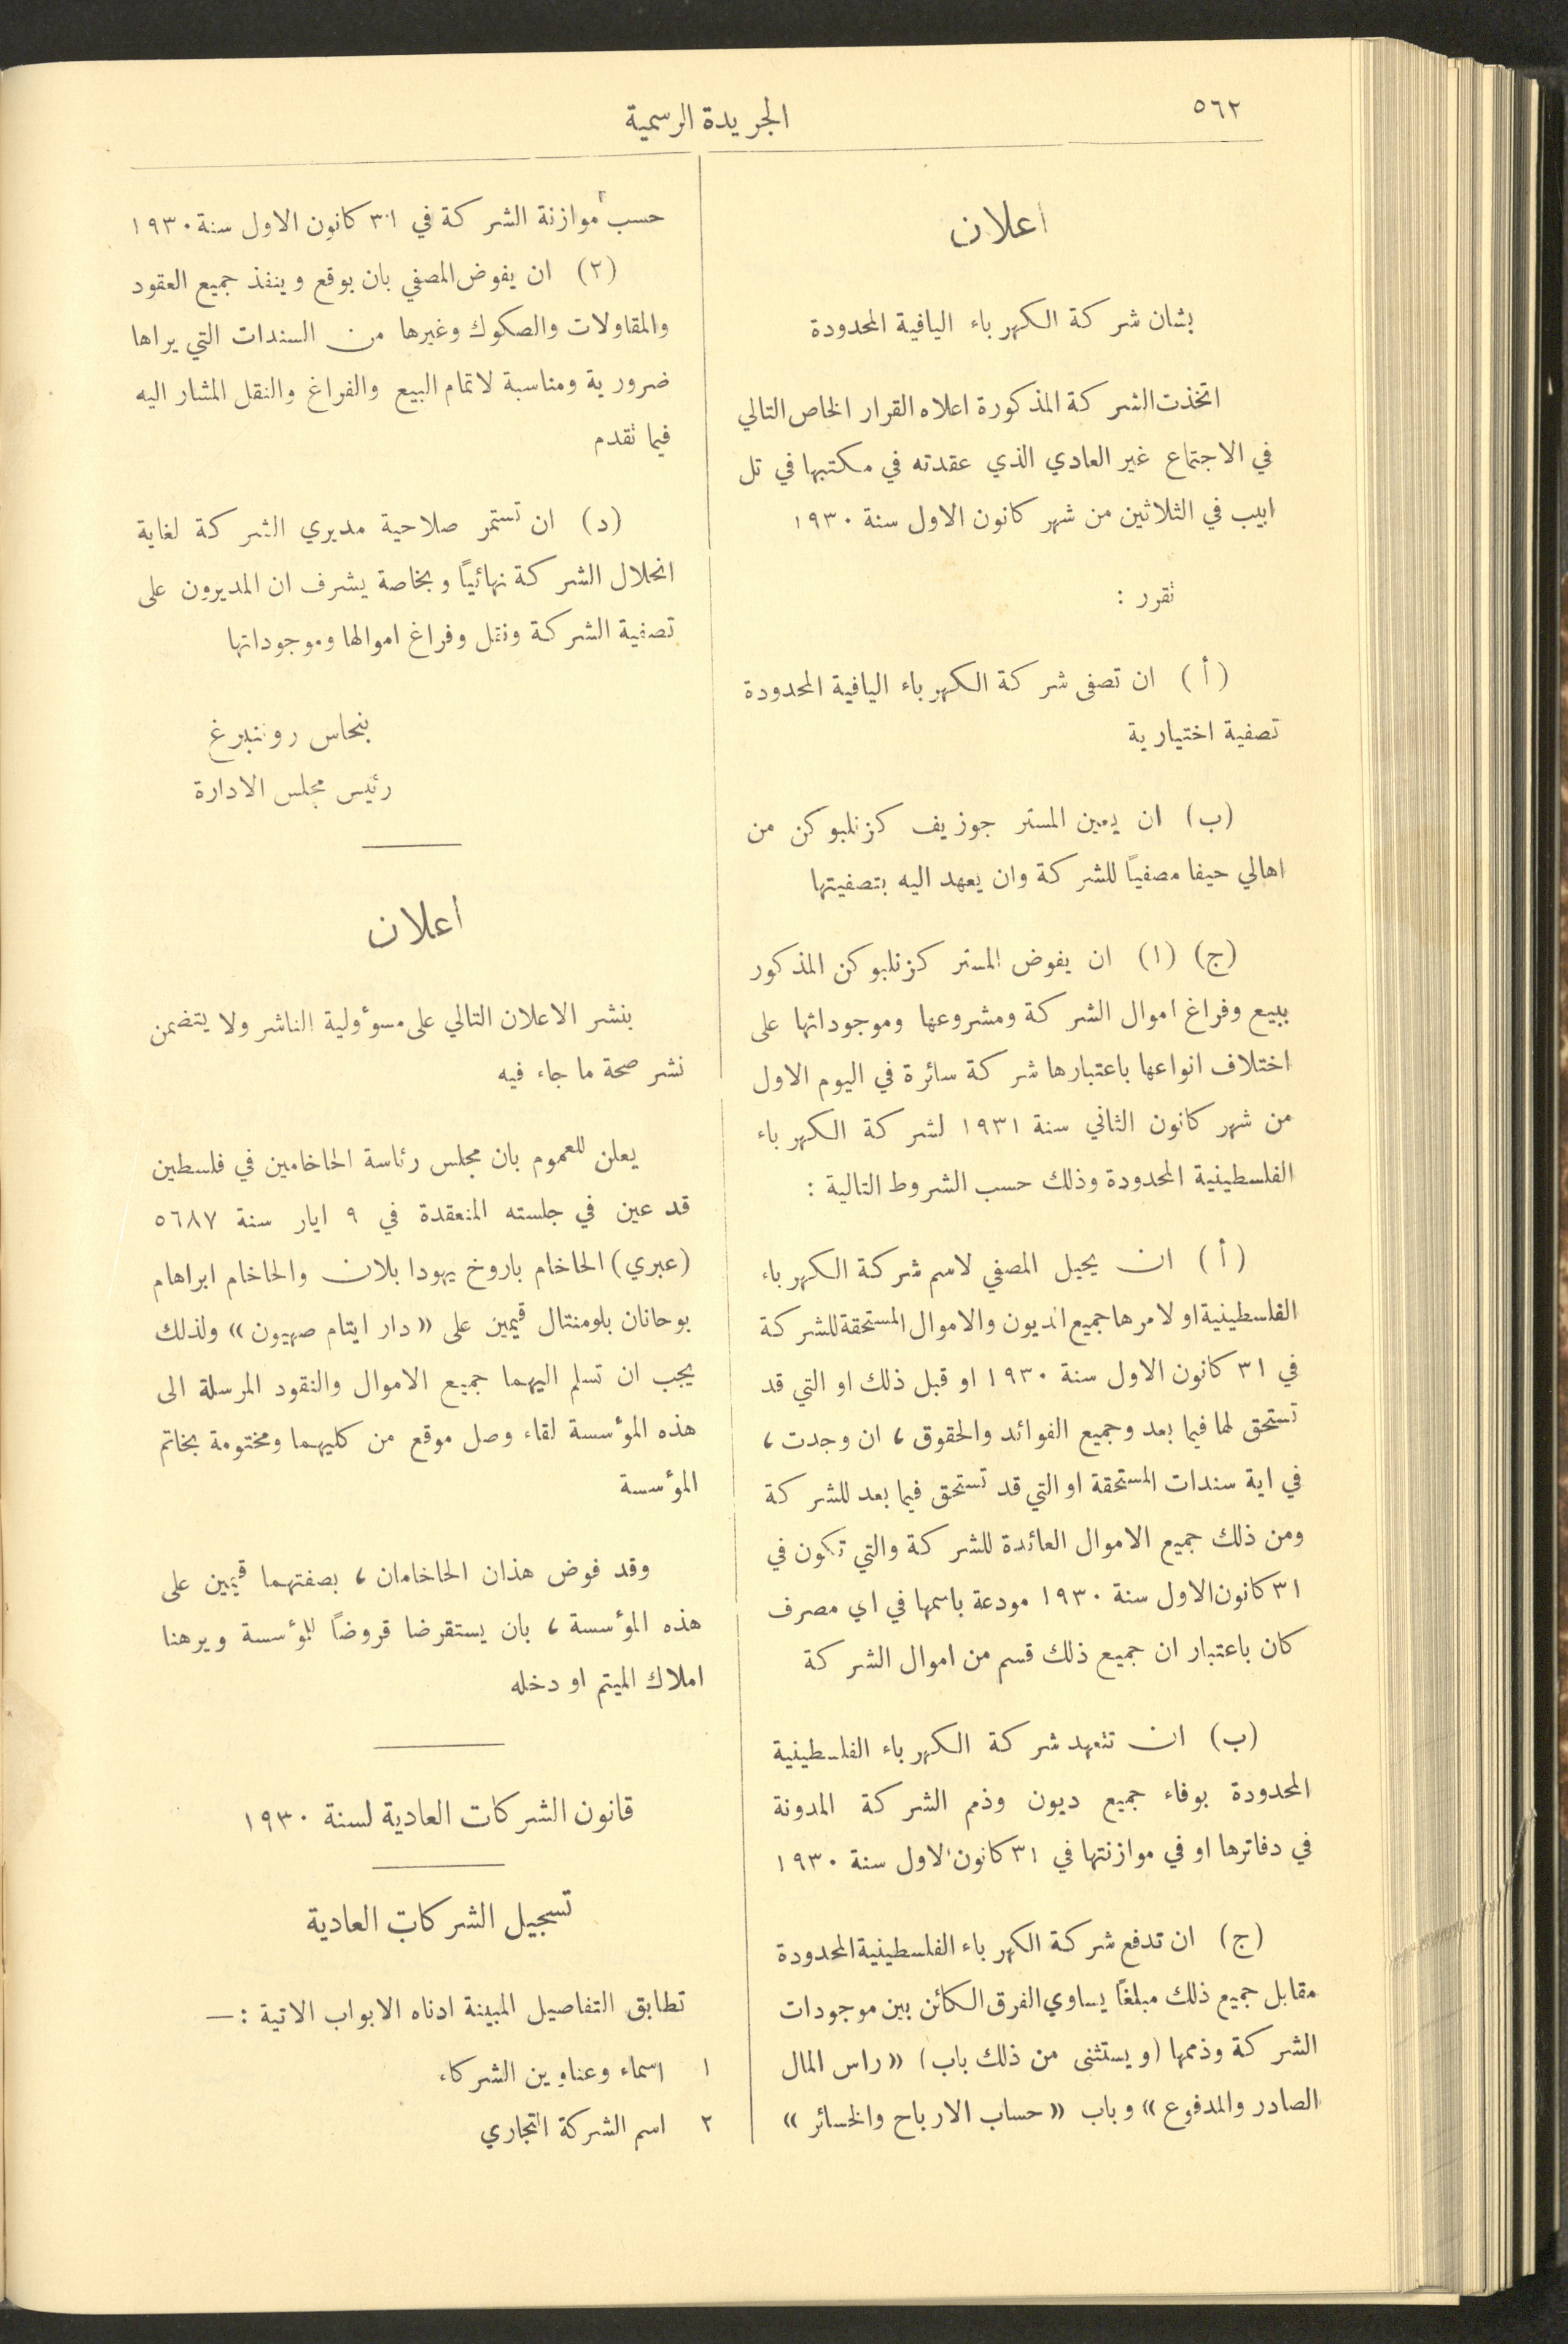 ٥٦٢
الجريدة الرسمية
اعلان
بشان شركة الكهرباء اليافية المحدودة
اتخذت الشركة المذكورة اعلاه القرار الخاص التالي
في الاجتماع غير العادي الذي عقدته في مكتبها في تل
ابيب في الثلاثين من شهر كانون الاول سنة ١٩٣٠
تقرر :
(أ) ان تصفى شركة الكهرباء اليافية المحدودة
تصفية اختيارية
(ب) ان يعين المستر جوزيف كزنلبوكن من
اهالي حيفا مصفياً للشركة وان يعهد اليه بتصفيتها
(ج) (١) ان يفوض المستر كزنلبوكن المذكور
ببيع وفراغ اموال الشركة ومشروعها وموجوداتها على
اختلاف انواعها باعتبارها شركة سائرة في اليوم الاول
من شهر كانون الثاني سنة ١٩٣١ لشركة الكهرباء
الفلسطينية المحدودة وذلك حسب الشروط التالية :
(أ) ان يحيل المصفي لاسم شركة الكهرباء
الفلسطينية او لامرها جميع الديون والاموال المستحقة للشركة
في ٣١ كانون الاول سنة ١٩٣٠ او قبل ذلك او التي قد
تستحق لها فيما بعد وجميع الفوائد والحقوق ، ان وجدت ،
في اية سندات المستحقة او التي قد تستحق فيما بعد للشركة
ومن ذلك جميع الاموال العائدة للشركة والتي تكون في
٣١ كانون الاول سنة ١٩٣٠ مودعة باسمها في اي مصرف
كان باعتبار ان جميع ذلك قسم من اموال الشركة
(ب) ان تتعهد شركة الكهرباء الفلسطينية
المحدودة بوفاء جميع ديون وذمم الشركة المدونة
في دفاترها او في موازنتها في ٣١ كانون الاول سنة ١٩٣٠
(ج) ان تدفع شركة الكهرباء الفلسطينية المحدودة
مقابل جميع ذلك مبلغاً يساوي الفرق الكائن بين موجودات
الشركة وذممها (ويستثنى من ذلك باب) «راس المال
الصادر والمدفوع» وباب «حساب الارباح والخسائر»
حسب موازنة الشركة في ٣١ كانون الاول سنة ١٩٣٠
(٢) ان يفوض المصفي بان يوقع وينفذ جميع العقود
والمقاولات والصكوك وغيرها من السندات التي يراها
ضرورية ومناسبة لاتمام البيع والفراغ والنقل المشار اليه
فيما تقدم
(د) ان تستمر صلاحية مديري الشركة لغاية
انحلال الشركة نهائياً وبخاصة يشرف ان المديرون على
تصفية الشركة ونقل وفراغ اموالها وموجوداتها
بنحاس روتنبرغ
رئيس مجلس الادارة
اعلان
ينشر الاعلان التالي على مسوؤلية الناشر ولا يتضمن
نشر صحة ما جاء فيه
يعلن للعموم بان مجلس رئاسة الحاخامين في فلسطين
قد عين في جلسته المنعقدة في ٩ ايار سنة ٥٦٨٧
(عبري) الحاخام باروخ يهودا بلان والحاخام ابراهام
يوحانان بلومنتال قيمين على «دار ايتام صهيون» ولذلك
يجب ان تسلم اليهما جميع الاموال والنقود المرسلة الى
هذه المؤسسة لقاء وصل موقع من كليهما ومختومة بخاتم
المؤسسة
وقد فوض هذان الحاخامان ، بصفتهما قيمين على
هذه المؤسسة ، بان يستقرضا قروضاً للمؤسسة ويرهنا
املاك الميتم او دخله
قانون الشركات العادية لسنة ١٩٣٠
تسجيل الشركات العادية
تطابق التفاصيل المبينة ادناه الابواب الاتية : —
١ اسماء وعناوين الشركاء
٢ اسم الشركة التجاري